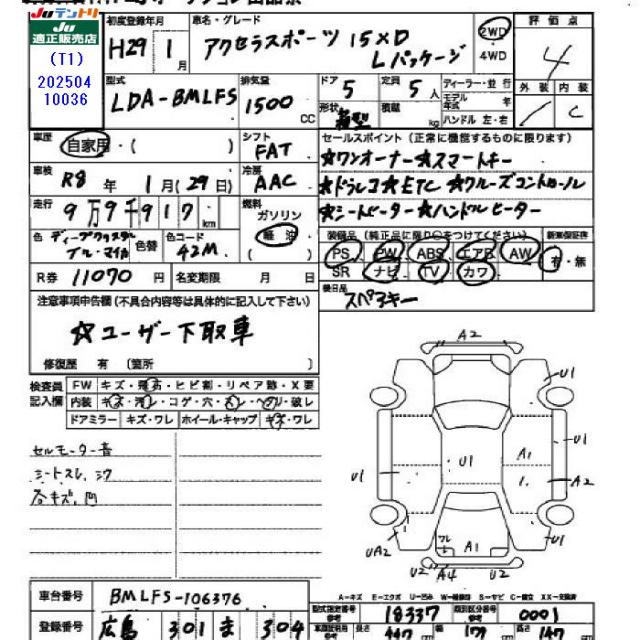 JUテントリ
Ju 適正販売店
(T1)
202504
10036
初度登録年月 車名・グレード 2WD 評価点
H29年 1月 アクセラスポーツ 15XD Lパッケージ 4WD 4
型式 排気量 ドア 定員 ディーラー・並行 外装 内装
LDA-BMLFS 1500 CC 5 5人 モデル年式 年 C
形状 箱型 積載 kg ハンドル 左・右
車歴 自家用・( ) シフト FAT セールスポイント(正常に機能するものに限ります)
☆ワンオーナー☆スマートキー
車検 R8年 1月(29日) 冷房 AAC ☆ドラレコ☆ETC ☆クルーズコントロール
走行 9万9千917km 燃料 ガソリン 軽油 ☆シートヒーター☆ハンドルヒーター
色 ディープクリスタルブルーマイカ 色替 色コード 42M 装備品(純正品に限り○をつけてください) 新車保証書
PS PW ABS エアB AW 有・無
SR ナビ TV カワ
R券 11070円 名変期限 月 日 後日品
スペアキー
注意事項申告欄(不具合内容等は具体的に記入して下さい)
☆ユーザー下取車
修復歴 有 (箇所 )
検査員記入欄 FW キズ・飛石・ヒビ割・リペア跡・X要
内装 キズ・汚レ・コゲ・穴・スレ・ヘタリ・破レ
ドアミラー キズ・ワレ ホイール・キャップ キズ・ワレ
セルモーター音
シートスレ、シワ
各キズ、凹
A2
U1
U1
U1
A1
U1
1.
A2
UA2
ワレ
A1
U2
U2 A4
A-キズ E-エクボ U-凹み W-補修跡 S-サビ C-腐蝕 XX-交換済
車台番号 BMLFS-106376
型式指定番号 18337 類別区分番号 0001
登録番号 広島 301 ま 304
長さ 447 幅 179 高さ 147